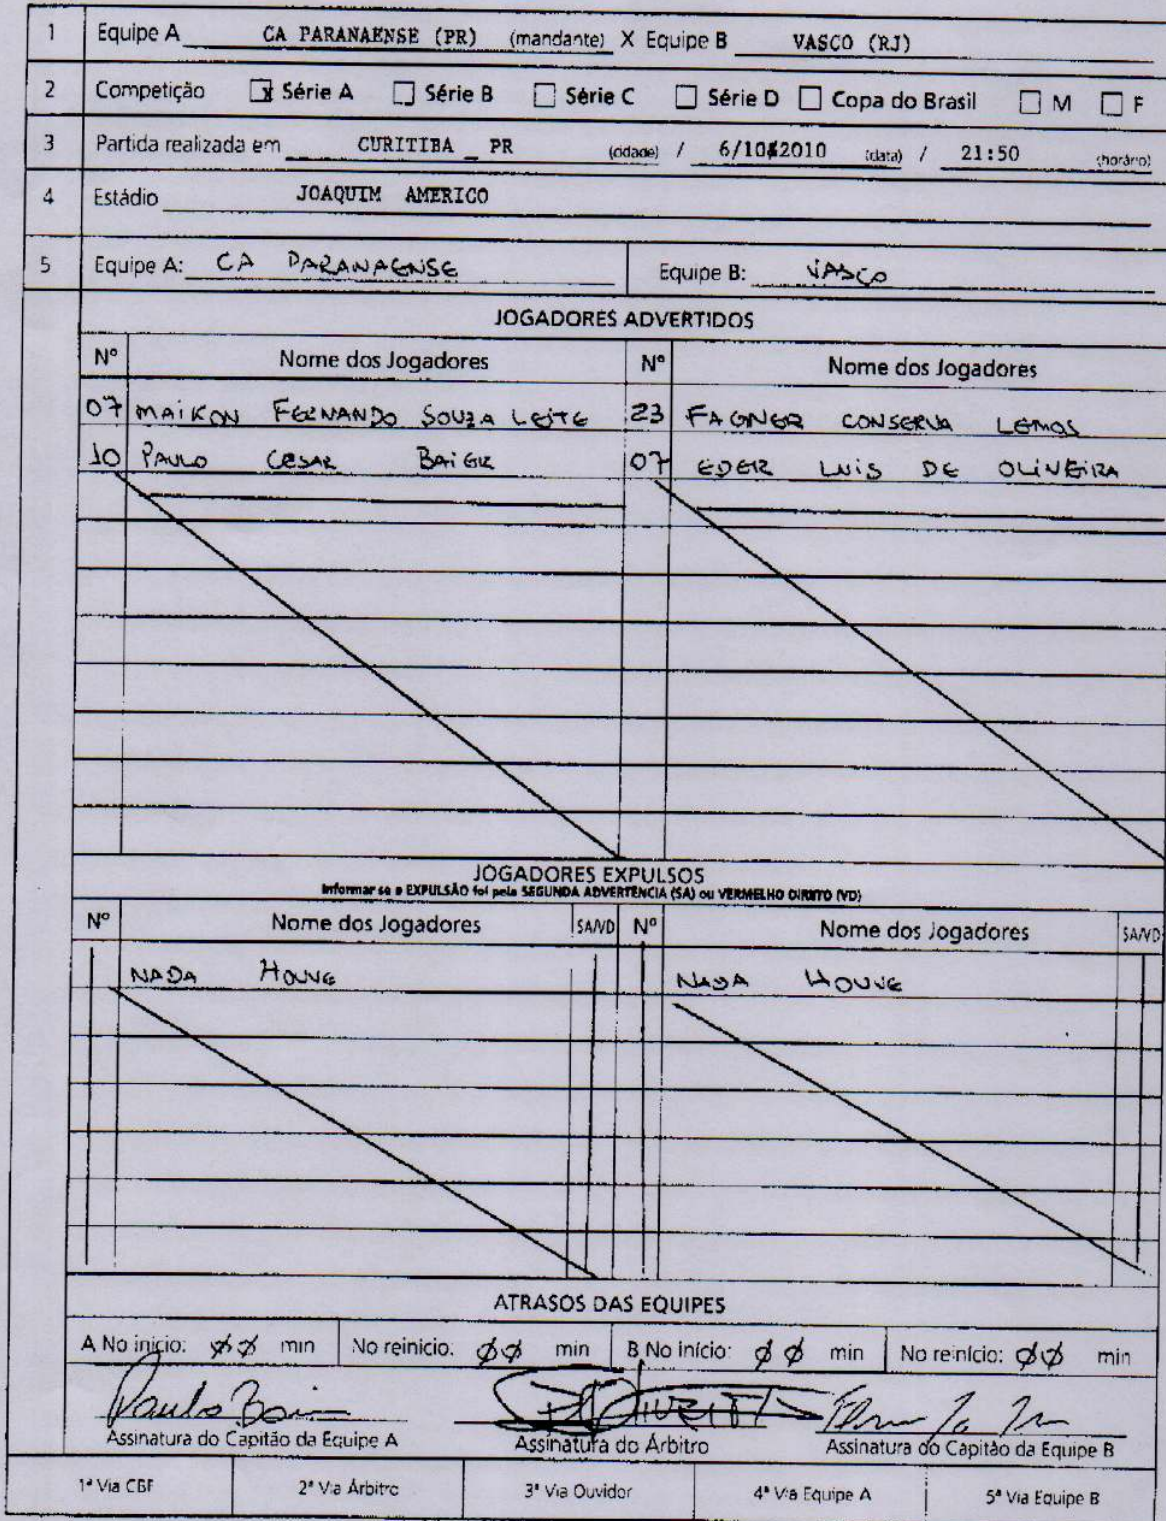 1 Equipe A CA PARANAENSE (PR) (mandante) X Equipe B VASCO (RJ)
2 Competição x Série A Série B Série C Série D Copa do Brasil M F
3 Partida realizada em CURITIBA _ PR (cidade) / 6/10/2010 (data) / 21:50 (horário)
4 Estádio JOAQUIM AMERICO
5 Equipe A: CA PARANAENSE Equipe B: VASCO
JOGADORES ADVERTIDOS
Nº Nome dos Jogadores Nº Nome dos Jogadores
07 MAIKON FERNANDO SOUZA LEITE 23 FAGNER CONSERVA LEMOS
10 PAULO CESAR BAIER 07 EDER LUIS DE OLIVEIRA
JOGADORES EXPULSOS
Informar se a EXPULSÃO foi pela SEGUNDA ADVERTENCIA (SA) ou VERMELHO DIRETO (VD)
Nº Nome dos Jogadores SA/VD Nº Nome dos Jogadores SA/VD
NADA HOUVE NADA HOUVE
ATRASOS DAS EQUIPES
A No início: 00 min No reinicio: 00 min B No início: 00 min No reinício: 00 min
Paulo Bai
Assinatura do Capitão da Equipe A Assinatura do Árbitro Assinatura do Capitão da Equipe B
1ª Via CBF 2ª Via Árbitro 3ª Via Ouvidor 4ª Via Equipe A 5ª Via Equipe B